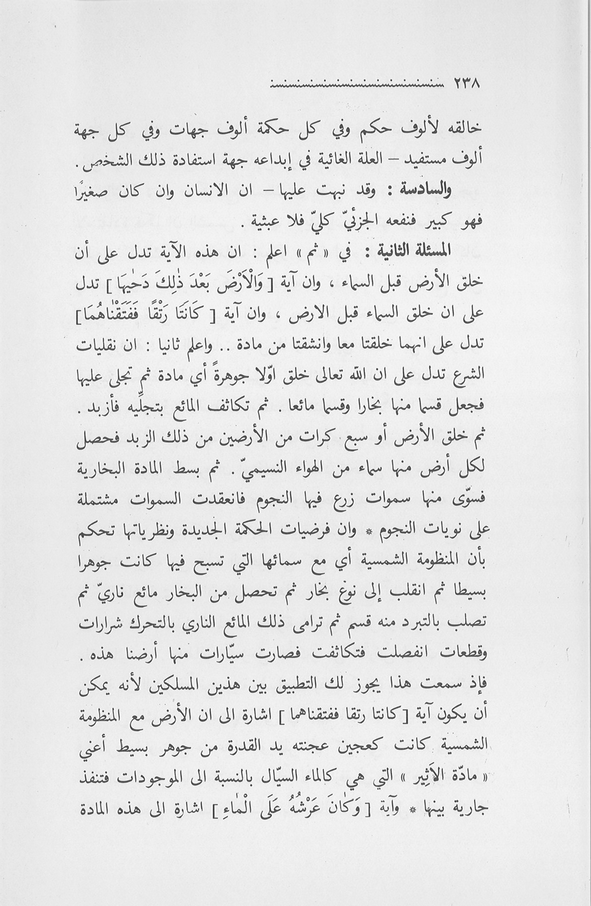 ٢٣٨
خالقه لألوف حكم وفي كل حكمة ألوف جهات وفي كل جهة
ألوف مستفيد – العلة الغائية في إبداعه جهة استفادة ذلك الشخص.
والسادسة : وقد نبهت عليها – ان الانسان وان كان صغيرًا
فهو كبير فنفعه الجزئيّ كليّ فلا عبثية .
المسئلة الثانية : في « ثم » اعلم : ان هذه الآية تدل على أن
خلق الأرض قبل السماء ، وان آية [ وَالْاَرْضَ بَعْدَ ذٰلِكَ دَحٰيهَا ] تدل
على ان خلق السماء قبل الارض ، وان آية [ كَانَتَا رَتْقًا فَفَتَقْنٰاهُمَا ]
تدل على انهما خلقتا معا وانشقتا من مادة .. واعلم ثانيا : ان نقليات
الشرع تدل على ان الله تعالى خلق اوّلا جوهرةً أي مادة ثم تجلى عليها
فجعل قسما منها بخارا وقسما مائعا . ثم تكاثف المائع بتجلِّيه فأزبد .
ثم خلق الأرض أو سبع كرات من الأرضين من ذلك الزبد فحصل
لكل أرض منها سماء من الهواء النسيميّ . ثم بسط المادة البخارية
فسوّى منها سموات زرع فيها النجوم فانعقدت السموات مشتملة
على نويات النجوم * وان فرضيات الحكمة الجديدة ونظرياتها تحكم
بأن المنظومة الشمسية أي مع سمائها التي تسبح فيها كانت جوهرا
بسيطا ثم انقلب إلى نوع بخار ثم تحصل من البخار مائع ناريّ ثم
تصلب بالتبرد منه قسم ثم ترامى ذلك المائع الناري بالتحرك شرارات
وقطعات انفصلت فتكاثفت فصارت سيّارات منها أرضنا هذه .
فإذ سمعت هذا يجوز لك التطبيق بين هذين المسلكين لأنه يمكن
أن يكون آية [ كانتا رتقا ففتقناهما ] اشارة الى ان الأرض مع المنظومة
الشمسية كانت كعجين عجنته يد القدرة من جوهر بسيط أعني
« مادّة الاَثِير » التي هي كالماء السيّال بالنسبة الى الموجودات فتنفذ
جارية بينها * وآية [ وَكَانَ عَرْشُهُ عَلَى الْمٰاءِ ] اشارة الى هذه المادة